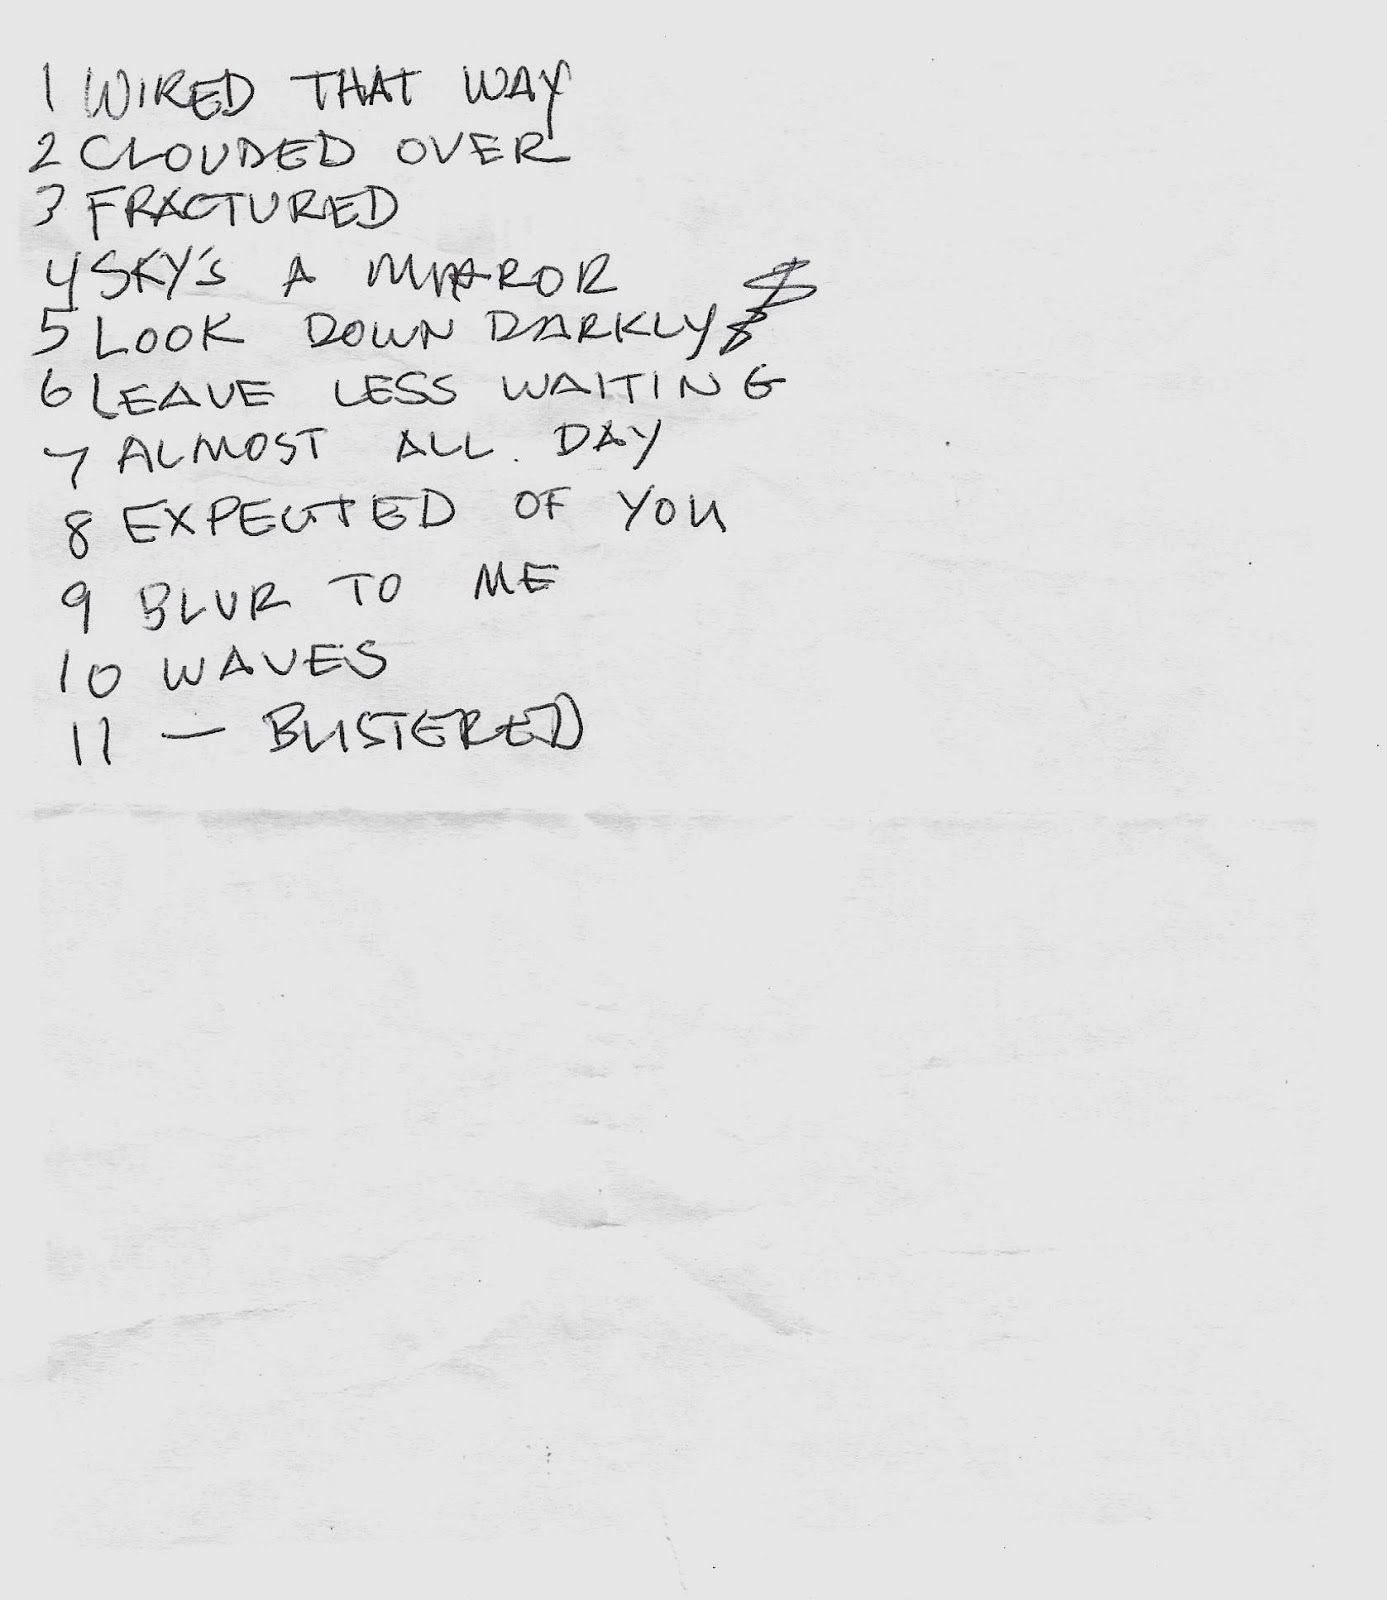 1 WIRED THAT WAY
2 CLOUDED OVER
3 FRACTURED
4 SKY'S A MIRROR
5 LOOK DOWN DARKLY
6 LEAVE LESS WAITING
7 ALMOST ALL DAY
8 EXPECTED OF YOU
9 BLUR TO ME
10 WAVES
11 — BLISTERED